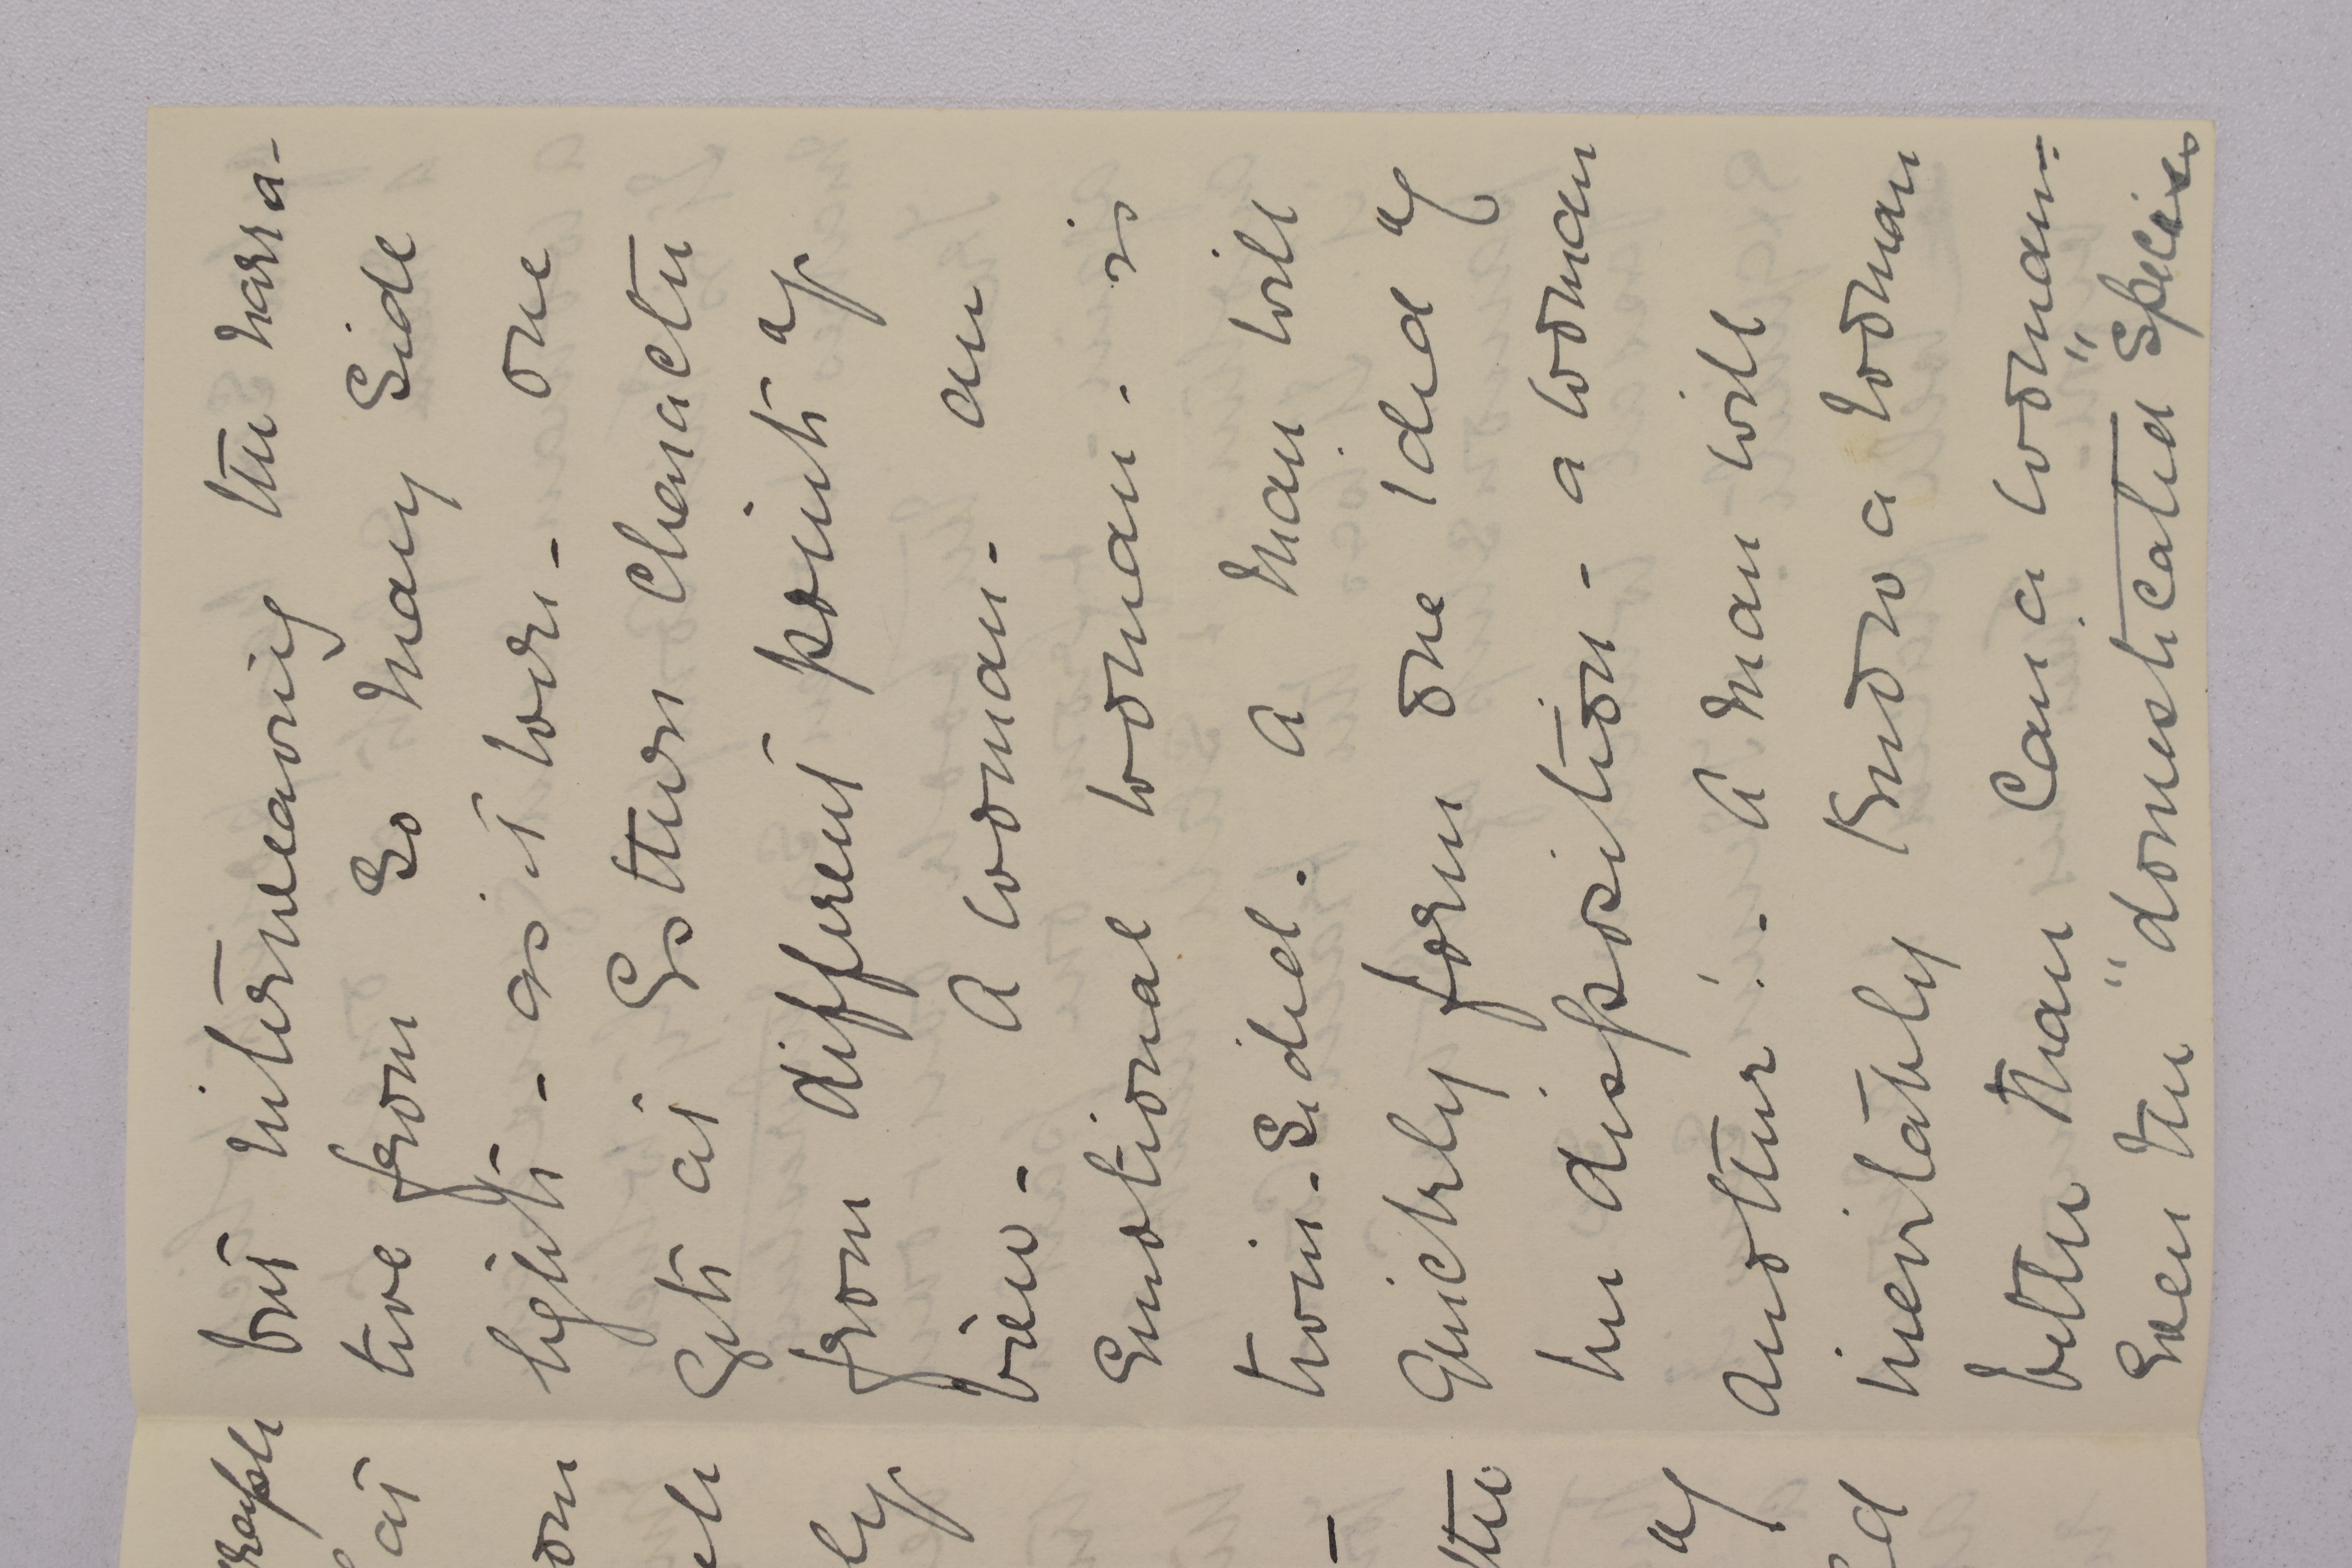 but interweaving the narra-
tive from so many side
lights - as it were - one
gets at Esthers character
from different points of
view - A woman - an
emotional woman - is
twin-sided. A man will
quickly form one idea of
her disposition - a woman
another! - A man will
inevitably know a woman
better than can a woman -
Even the "domesticated" species
at
of